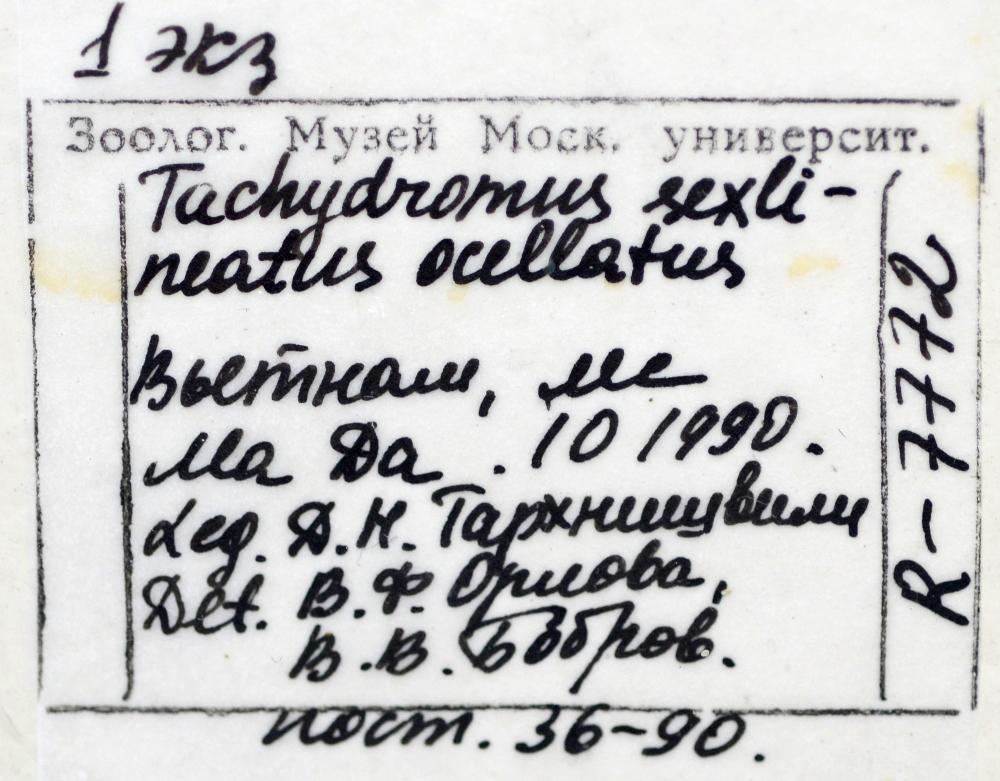 1 экз
Зоолог. Музей Моск. университ.
Tachydromus sexli-
neatus ocellatus
Вьетнам, ме
Ма Да . 10 1990.
Leg. Д.Н. Тархнишвили
Det. В.Ф. Орлова,
В.В. Бобров.
пост. 36-90.
R-7772